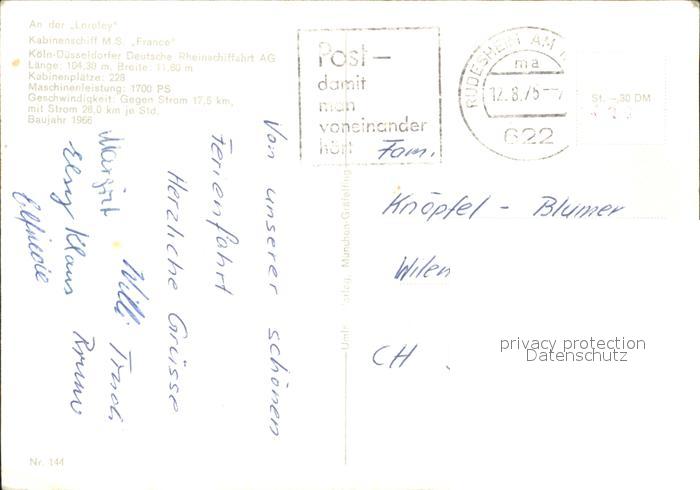 An der „Loreley"
Kabinenschiff M.S. „France"
Köln-Düsseldorfer Deutsche Rheinschiffahrt AG
Länge: 104,30 m, Breite: 11,60 m
Kabinenplätze: 228
Maschinenleistung: 1700 PS
Geschwindigkeit: Gegen Strom 17,5 km,
mit Strom 26,0 km je Std.
Baujahr 1966
Post –
damit
man
voneinander
hört
RÜDESHEIM AM
ma
12.8.75
622
St. –,30 DM
Von unserer schönen
Ferienfahrt
Herzliche Grüsse
Margrit Willi Trudi
Elsy Klaus Bruno
Elfriede
Fam.
Knöpfel - Blumer
Wilen
CH .
privacy protection
Datenschutz
Verlag, München-Gräfelfing
Nr. 144